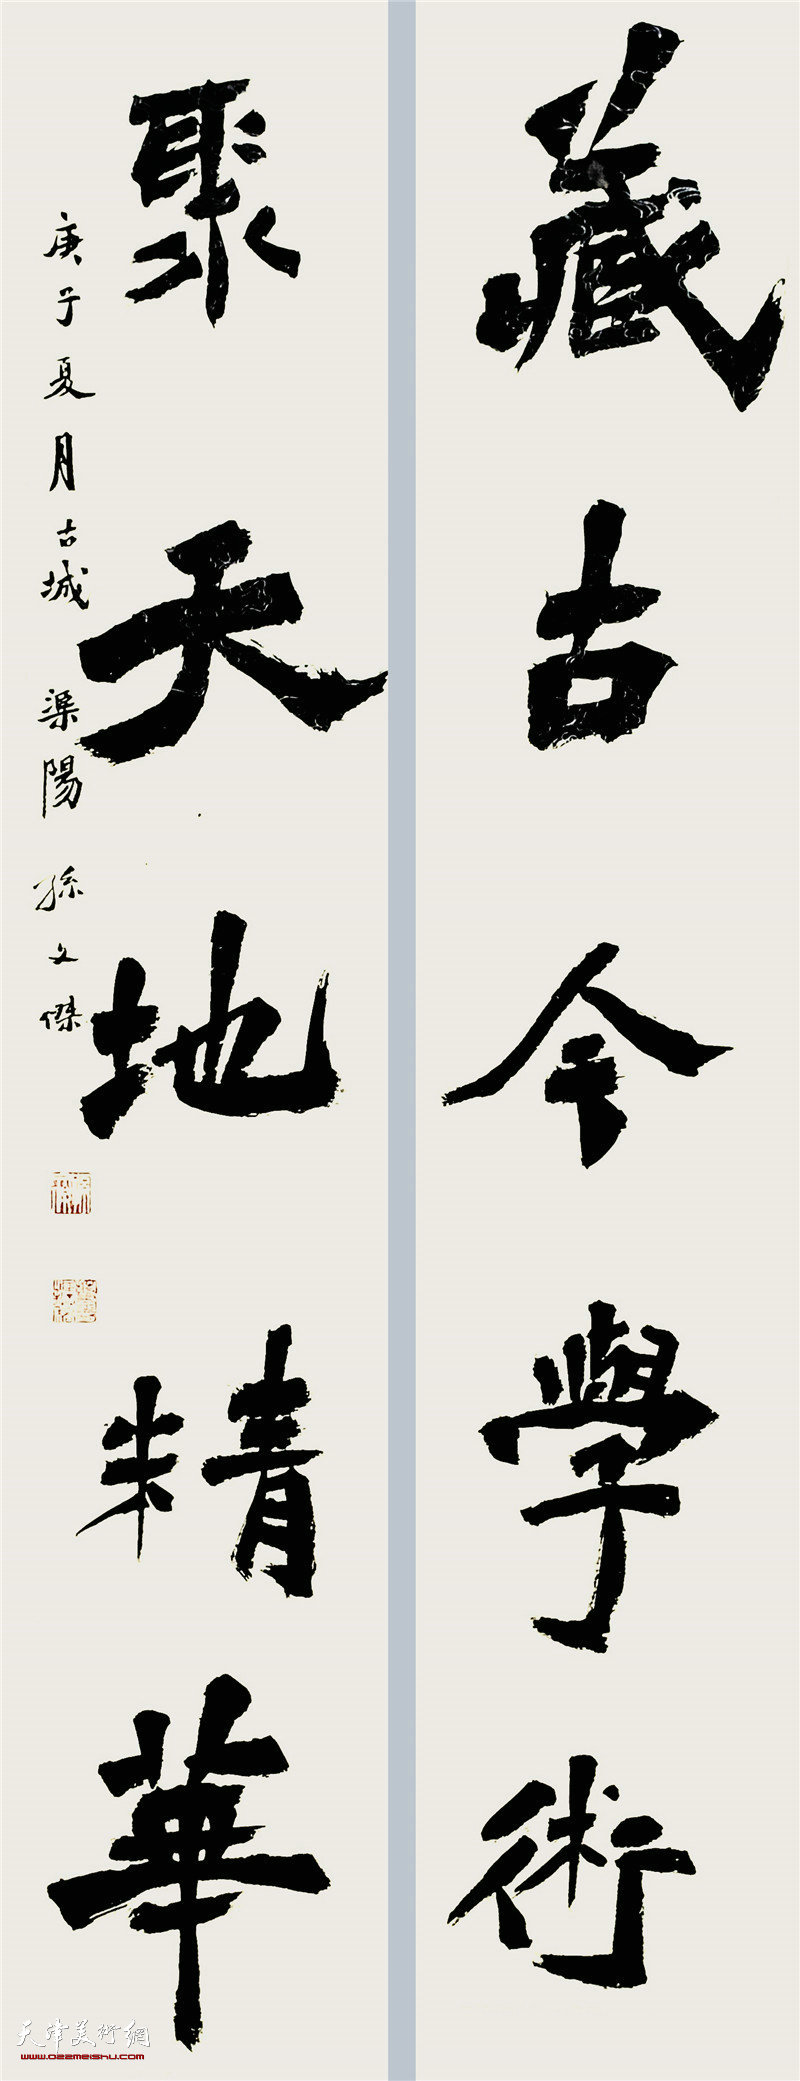 藏古今學術
聚天地精華
庚子夏月古城渠陽孫文傑
天津美術網
www.022meishu.com